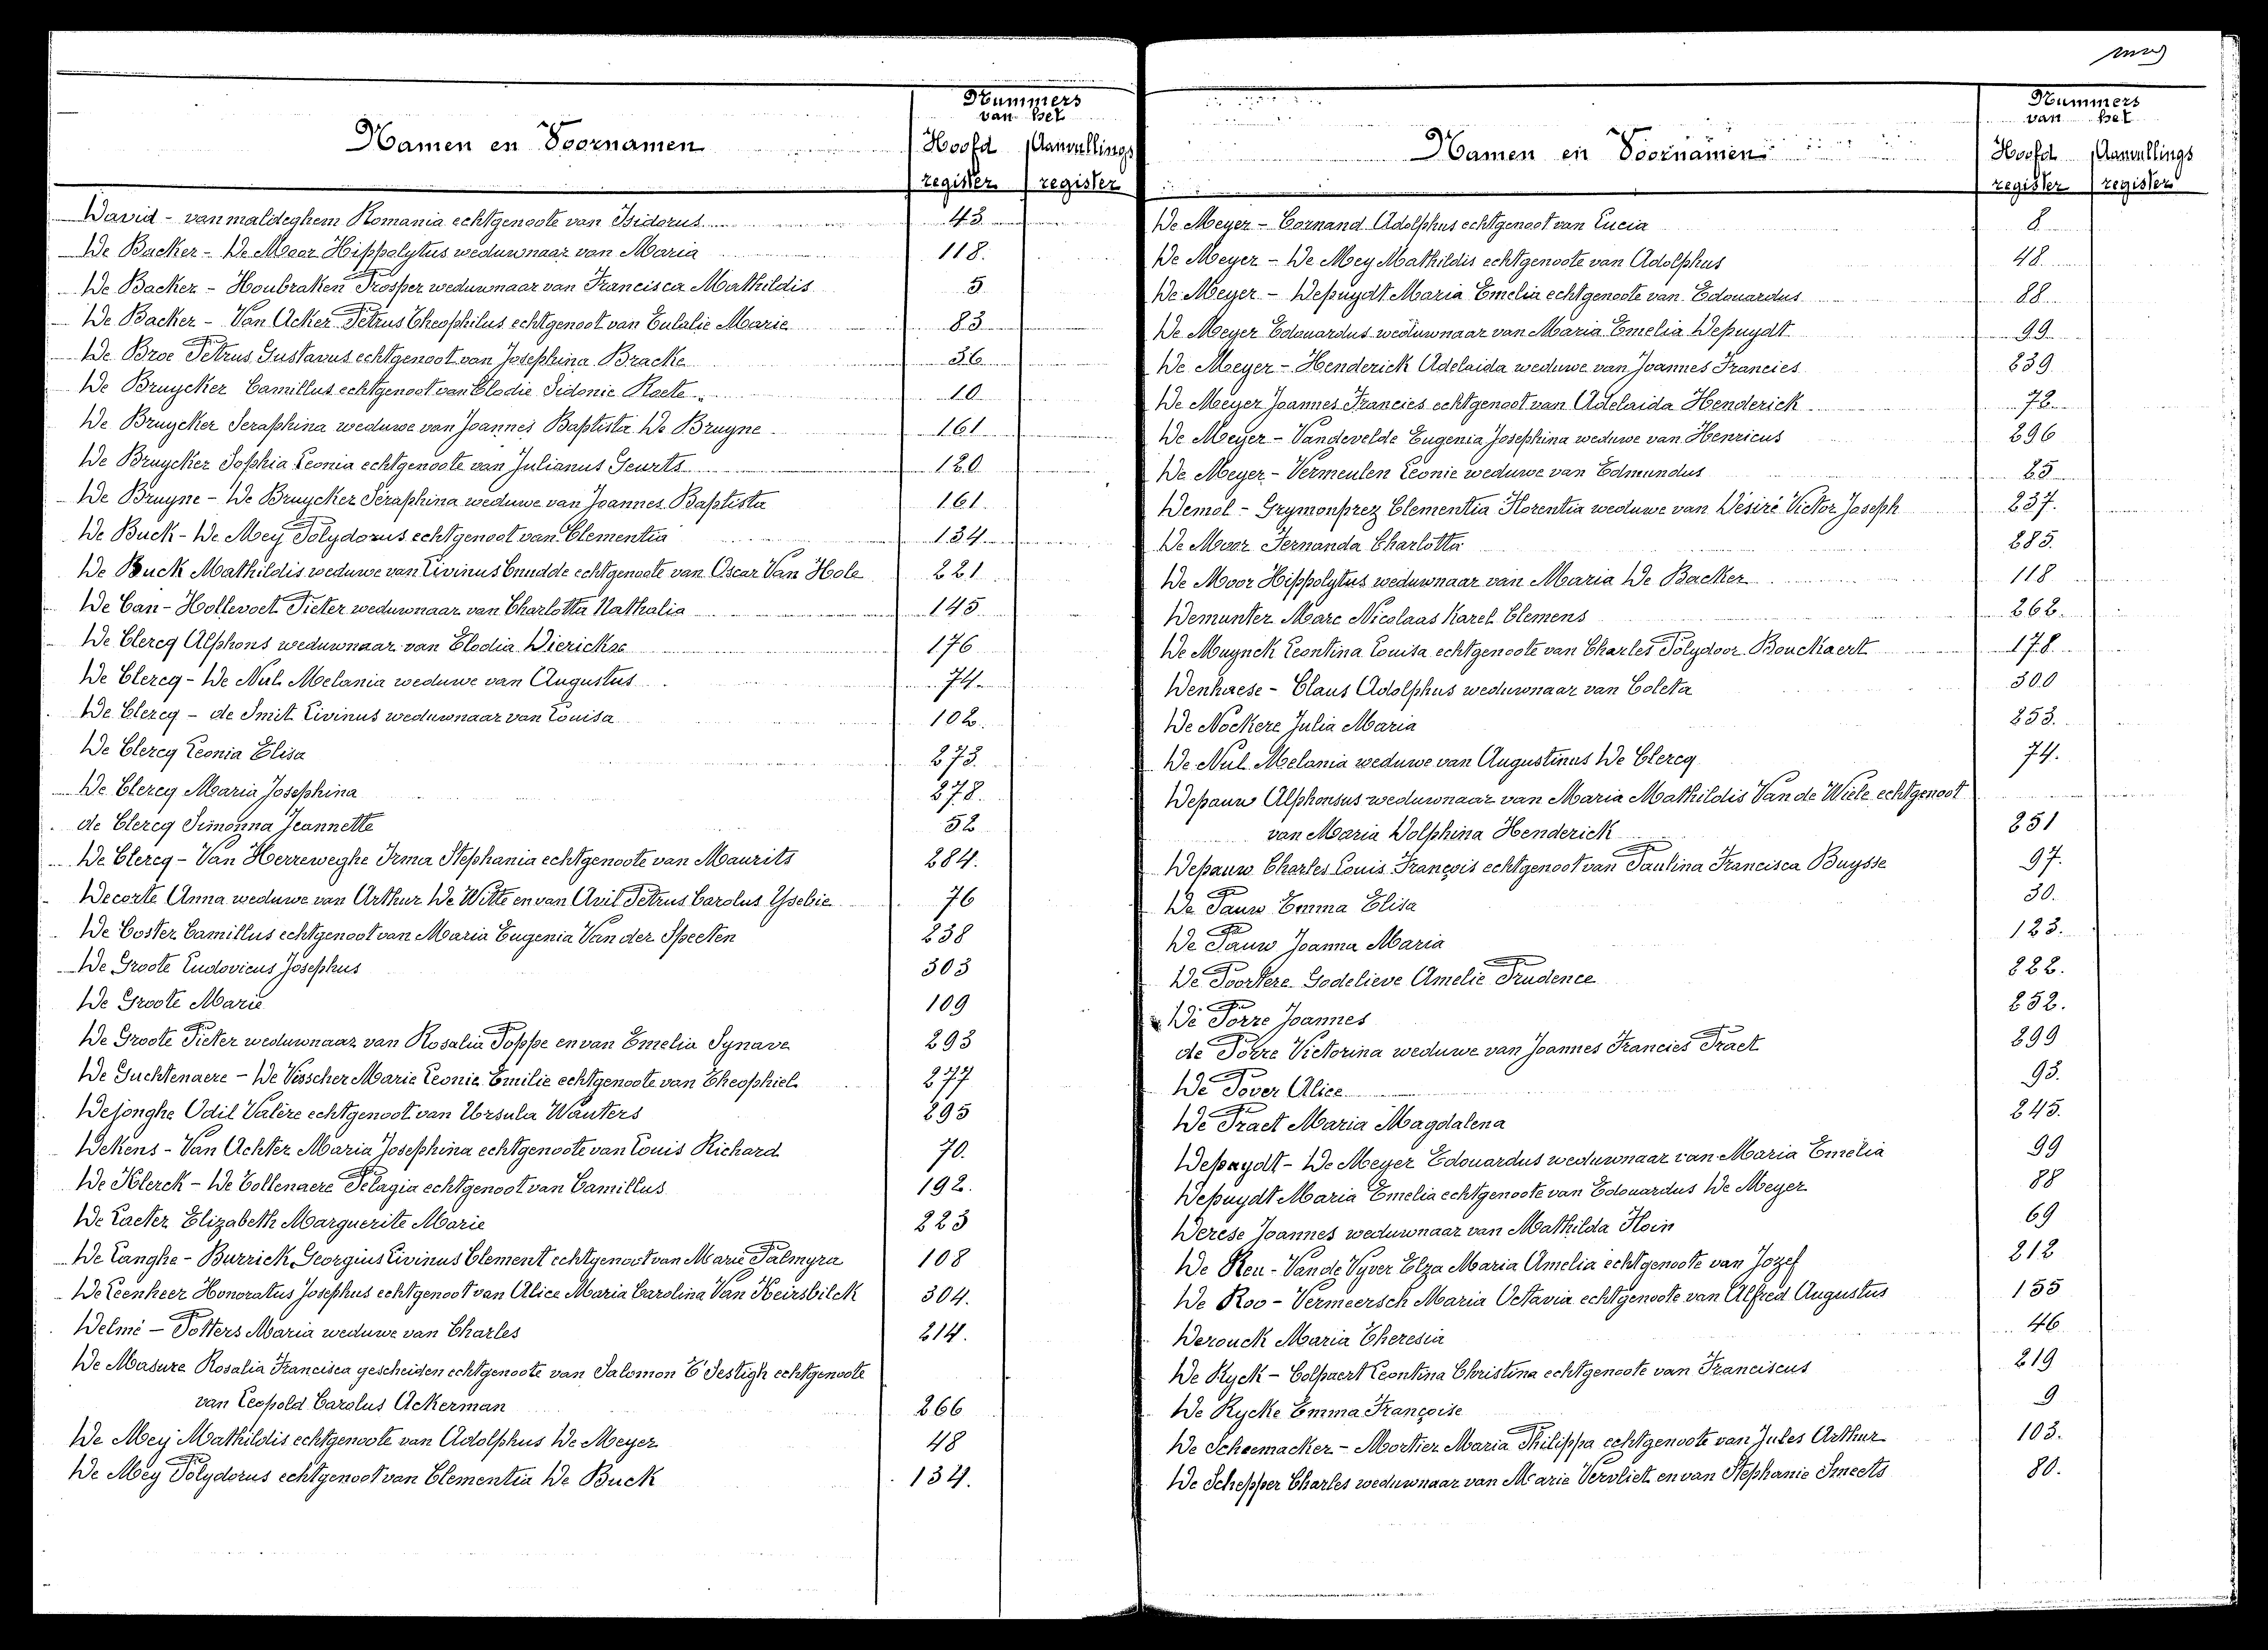 Nummers
van het
Namen en Voornamen
Hoofd Aanvullings
register register
David - van maldeghem Romania echtgenoote van Isidorus 43
De Backer - De Moor Hippolytus weduwnaar van Maria 118.
De Backer - Houbraken Prosper weduwnaar van Francisca Mathildis 5
De Backer - Van Acker Petrus Theophilus echtgenoot van Eulalie Marie 83
De Broe Petrus Gustavus echtgenoot van Josephina Bracke 36
De Bruycker Camillus echtgenoot van Elodie Sidonie Roete 10
De Bruycker Seraphina weduwe van Joannes Baptista De Bruyne 161
De Bruycker Sophia Leonia echtgenoote van Julianus Geurts 120
De Bruyne - De Bruycker Seraphina weduwe van Joannes Baptista 161.
De Buck - De Mey Polydorus echtgenoot van Clementia 134
De Buck Mathildis weduwe van Livinus Cnudde echtgenoote van Oscar Van Hole 221
De Can - Hollevoet Pieter weduwnaar van Charlotta Nathalia 145
De Clercq Alphons weduwnaar van Elodia Dierickse 176
De Clercq - De Nul Melania weduwe van Augustus 74
De Clercq - de Smit Livinus weduwnaar van Louisa 102.
De Clercq Leonia Elisa 273.
De Clercq Maria Josephina 278.
de Clercq Simonna Jeannette 52
De Clercq - Van Herreweghe Irma Stephania echtgenoote van Maurits 284.
Decorte Anna weduwe van Arthur De Witte en van Avil Petrus Carolus Ysebie 76
De Coster Camillus echtgenoot van Maria Eugenia Van der Specten 238
De Groote Ludovicus Josephus 303
De Groote Marie 109
De Groote Pieter weduwnaar van Rosalia Poppe en van Emelia Synave 293
De Guchtenaere - De Visscher Marie Leonie Emilie echtgenoote van Theophiel 277
Dejonghe Odil Valère echtgenoot van Ursula Wauters 295
Dekens - Van Achter Maria Josephina echtgenoote van Louis Richard 70.
De Klerck - De Collenaere Pelagia echtgenoot van Camillus 192.
De Laeter Elizabeth Marguerite Marie 223
De Langhe - Burrick Georgius Livinus Clement echtgenoot van Marie Palmyra 108
De Leenheer Honoratus Josephus echtgenoot van Alice Maria Carolina Van Keirsbilck 304.
Delmé - Potters Maria weduwe van Charles 214.
De Masure Rosalia Francisca gescheiden echtgenoote van Salomon T'Sestigh echtgenoote
van Leopold Carolus Ackerman 266
De Mey Mathildis echtgenoote van Adolphus De Meyer 48
De Mey Polydorus echtgenoot van Clementia De Buck 134.
Nummers
van het
Namen en Voornamen
Hoofd Aanvullings
register register
De Meyer - Cornand Adolphus echtgenoot van Lucia 8
De Meyer - De Mey Mathildis echtgenoote van Adolphus 48
De Meyer - Depuydt Maria Emelia echtgenoote van Edouardus 88
De Meyer Edouardus weduwnaar van Maria Emelia Depuydt 99
De Meyer - Henderick Adelaida weduwe van Joannes Francies 239
De Meyer Joannes Francies echtgenoot van Adelaida Henderick 72
De Meyer - Vandevelde Eugenia Josephina weduwe van Henricus 296
De Meyer - Vermeulen Leonie weduwe van Edmundus 25
Demol - Grymonprez Clementia Florentia weduwe van Désiré Victor Joseph 237.
De Moor Fernanda Charlotta 285.
De Moor Hippolytus weduwnaar van Maria De Backer 118
Demunter Marc Nicolaas Karel Clemens 262.
De Muynck Leontina Louisa echtgenoote van Charles Polydoor Bouckaert 178
Denhaese - Claus Adolphus weduwnaar van Coleta 300
De Nockere Julia Maria 253.
De Nul Melania weduwe van Augustinus De Clercq 74.
Depauw Alphonsus weduwnaar van Maria Mathildis Van de Wiele echtgenoot
van Maria Dolphina Henderick 251
Depauw Charles Louis François echtgenoot van Paulina Francisca Buysse 97.
De Pauw Emma Elisa 30.
De Pauw Joanna Maria 123.
De Poortere Godelieve Amelie Prudence 222.
De Porre Joannes 252.
de Porre Victorina weduwe van Joannes Francies Praet 299
De Pover Alice 93.
De Praet Maria Magdalena 245.
Depuydt - De Meyer Edouardus weduwnaar van Maria Emelia 99
Depuydt Maria Emelia echtgenoote van Edouardus De Meyer 88
Derese Joannes weduwnaar van Mathilda Hoin 69
De Reu - Van de Vyver Elza Maria Amelia echtgenoote van Jozef 212
De Roo - Vermeersch Maria Octavia echtgenoote van Alfred Augustus 155
Derouck Maria Theresia 46
De Ryck - Colpaert Leontina Christina echtgenoote van Franciscus 219
De Rycke Emma Françoise 9
De Scheemacker - Mortier Maria Philippa echtgenoote van Jules Arthur 103.
De Schepper Charles weduwnaar van Marie Vervliet en van Stephanie Smeets 80.